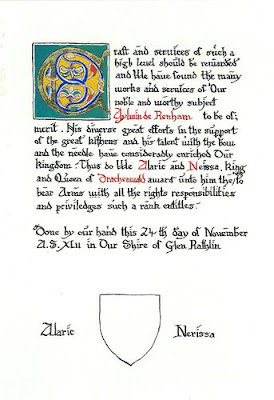 Craft and services of such a
high level should be rewarded
and We have found the many
works and services of Our
noble and worthy subject
de Renham to be of
merit. His diverse great efforts in the support
of the great kitchens and his talent with the bow
and the needle have considerably enriched Our
kingdom. Thus do We Alaric and Nerissa, King
and Queen of Drachenwald award unto him the/to
bear Arms with all the rights responsibilities
and priviledges such a rank entitles.
Done by our hand this 24th day of November
A.S. XLII in Our Shire of Glen Rathlin
Alaric Nerissa